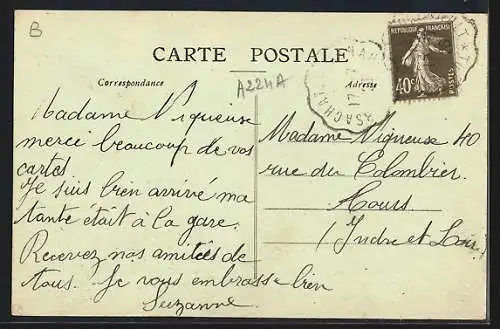 B
CARTE POSTALE
Correspondance
Adresse
A224A
REPUBLIQUE FRANÇAISE
40c
POSTES
Madame Viqueuse
merci beaucoup de vos
cartes
Je suis bien arrivé ma
tante était à la gare.
Recevez nos amitiés de
tous. Je vous embrasse bien
Suzanne
Madame Viqueuse 40
rue du Colombier.
Tours
(Indre et Loire)